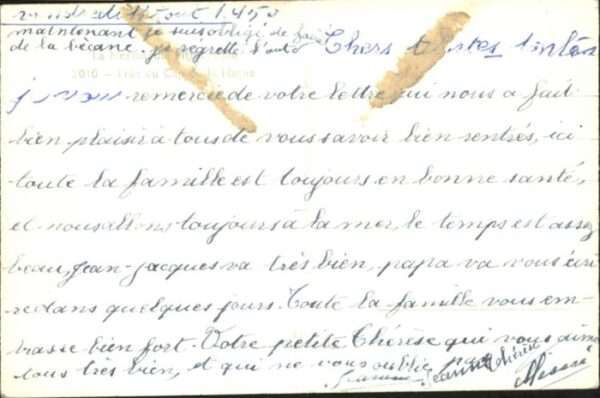 1950
maintenant je suis obligé de faire
de la bécane. je regrette l'auto
Chers
2010
remercie de votre lettre qui nous a fait
bien plaisir à tous de vous savoir bien rentrés, ici
toute la famille est toujours en bonne santé,
et nous allons toujours à la mer, le temps est assez
beau, Jean-Jacques va très bien, papa va vous écri
re dans quelques jours. Toute la famille vous em-
brasse bien fort. Votre petite Thérèse qui vous aime
tous très bien, et qui ne vous oublie pas
Jeanine Thérèse